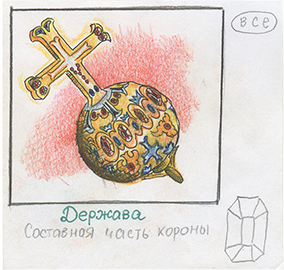 все
Держава
Составная часть короны